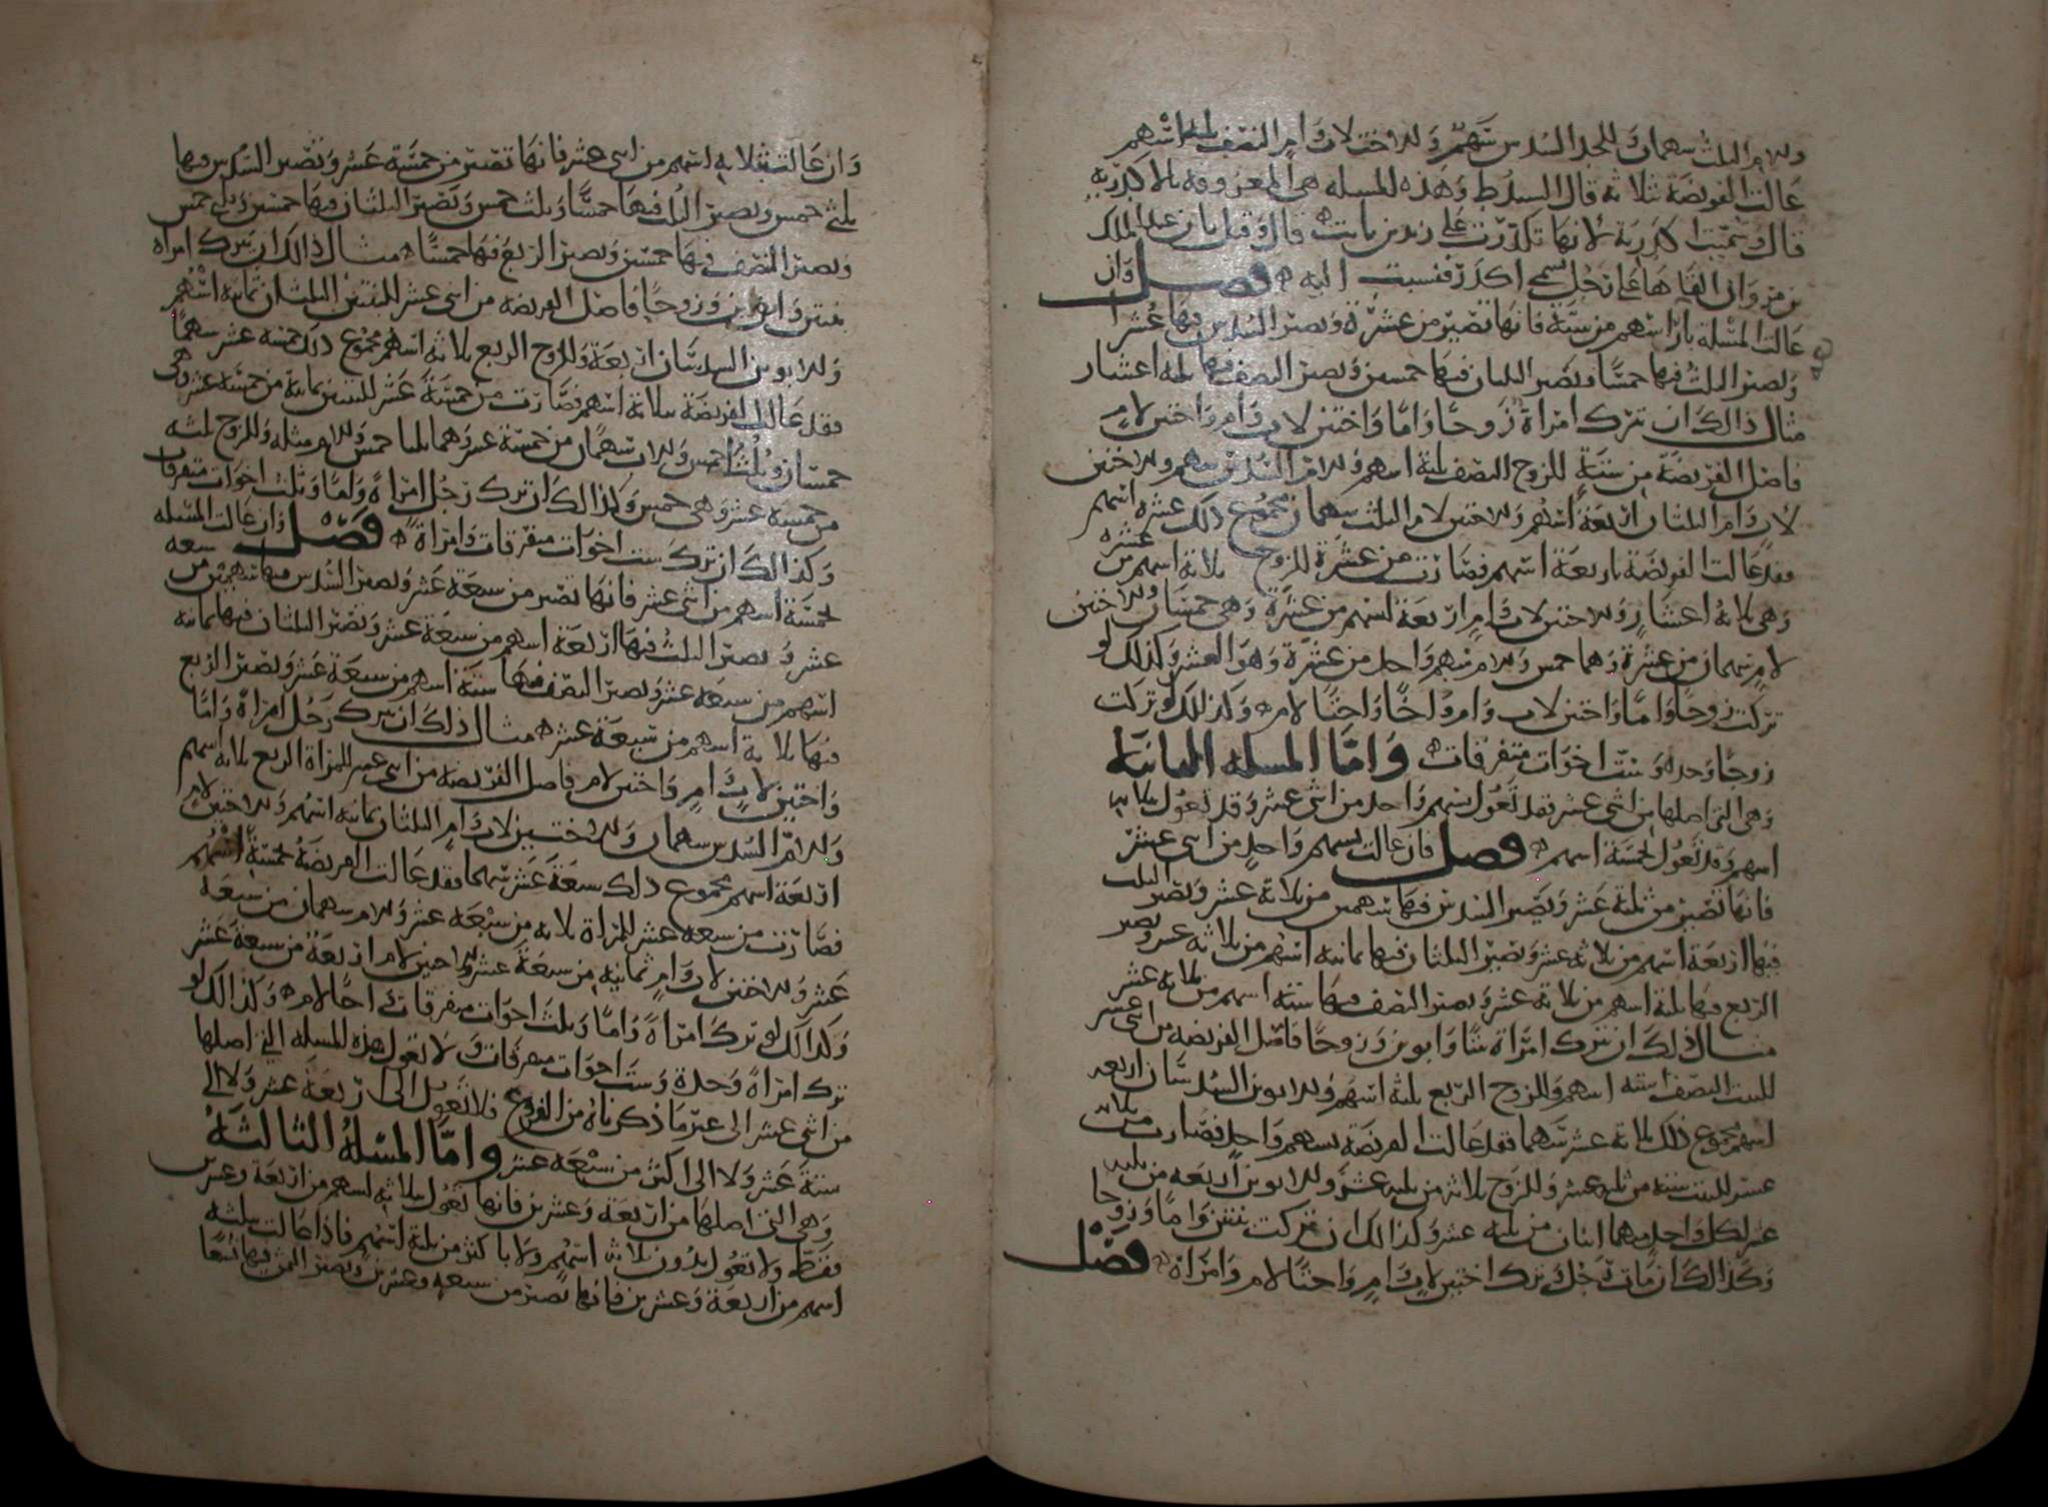 وللام الثلث سهمان وللجد السدس سهم وللاخت لاب وام النصف ثلثة اسهم
عالت الفريضة ثلاثة قال السيد ط وهذه المسلة هي المعروفة بالاكدرية
قال وسميت اكدرية لانها تكدرت على زيد بن ثابت ه قال وقيل بان عبد الملك
بن مروان القاها على رجل يسمى اكدر فنسبت اليه ه فصل وان
عالت المسلة باربعة اسهم من ستة فانها تصير من عشرة ويصير السدس فيها عشرا
ويصير الثلث فيها خمسا ويصير الثلثان فيها خمسين ويصير النصف فيها ثلثة اعشار
مثال ذالك ان تترك امراة زوجا واما واختين لاب وام واختين لام
فاصل الفريضة من ستة للزوج النصف ثلثة اسهم وللام السدس سهم وللاختين
لاب وام الثلثان اربعة اسهم وللاختين لام الثلث سهمان مجموع ذلك عشرة اسهم
فقد عالت الفريضة باربعة اسهم فصارت من عشرة للزوج ثلاثة اسهم من عشرة
وهي ثلاثة اعشار وللاختين لاب وام اربعة اسهم من عشرة وهي خمسان وللاختين
لام سهمان من عشرة وهما خمس وللام سهم واحد من عشرة وهو العشر وكذلك لو
تركت زوجا واما واختين لاب وام واخا واختا لام ه وكذلك لو تركت
زوجا وجدة وست اخوات متفرقات ه واما المسلة الثانية
وهي التي اصلها من اثنى عشر فقد تعول بسهم واحد من اثنى عشر وقد تعول بثلاثة
اسهم وقد تعول بخمسة اسهم ه فصل فان عالت بسهم واحد من اثنى عشر
فانها تصير من ثلثة عشر ويصير السدس فيها سهمين من ثلاثة عشر ويصير الثلث
فيها اربعة اسهم من ثلاثة عشر ويصير الثلثان فيها ثمانية اسهم من ثلاثة عشر ويصير
الربع فيها ثلثة اسهم من ثلاثة عشر ويصير النصف فيها ستة اسهم من ثلاثة عشر
مثال ذلك ان تترك امراة بنتا وابوين وزوجا فاصل الفريضة من اثنى عشر
للبنت النصف ستة اسهم وللزوج الربع ثلثة اسهم وللابوين السدسان اربعة
اسهم مجموع ذلك ثلاثة عشر سهما فقد عالت الفريضة بسهم واحد فصارت من ثلاثة
عشر للبنت ستة من ثلثة عشر وللزوج ثلاثة من ثلثة عشر وللابوين اربعة من ثلثة
عشر لكل واحد منهما اثنان من ثلثة عشر وكذالك ان تركت بنتين واما وزوجا
وكذالك ان مات رجل وترك اختين لاب وام واختا لام وامراة ه فصل
وان عالت بثلاثة اسهم من اثنى عشر فانها تصير من خمسة عشر وتصير السدس فيها
ثلثي خمس ويصير الثلث فيها خمسا وثلث خمس ويصير الثلثان فيها خمسين وثلثي خمس
ويصير النصف فيها خمسين ويصير الربع فيها خمسا ه مثال ذالك ان تترك امراة
بنتين وابوين وزوجا فاصل الفريضة من اثنى عشر للبنتين الثلثان ثمانية اسهم
وللابوين السدسان اربعة وللزوج الربع ثلاثة اسهم مجموع ذلك خمسة عشر سهما
فقد عالت الفريضة بثلاثة اسهم فصارت من خمسة عشر للبنتين ثمانية من خمسة عشر وهي
خمسان وثلثا خمس وللاب سهمان من خمسة عشر وهما ثلثا خمس وللام مثله وللزوج ثلثة
من خمسة عشر وهي خمس وكذالك ان ترك رجل امراة واما وثلث اخوات متفرقات
وكذالك ان ترك ست اخوات متفرقات وامراة ه فصل وان عالت المسلة
بخمسة اسهم من اثنى عشر فانها تصير من سبعة عشر ويصير السدس فيها سهمين من سبعة
عشر ويصير الثلث فيها اربعة اسهم من سبعة عشر ويصير الثلثان فيها ثمانية
اسهم من سبعة عشر ويصير النصف فيها ستة اسهم من سبعة عشر ويصير الربع
فيها ثلاثة اسهم من سبعة عشر ه مثال ذلك ان يترك رجل امراة واما
واختين لاب وام واختين لام فاصل الفريضة من اثنى عشر للمراة الربع ثلاثة اسهم
وللام السدس سهمان وللاختين لاب وام الثلثان ثمانية اسهم وللاختين لام
اربعة اسهم مجموع ذلك سبعة عشر سهما فقد عالت الفريضة بخمسة اسهم
فصارت من سبعة عشر للمراة ثلاثة من سبعة عشر وللام سهمان من سبعة
عشر وللاختين لاب وام ثمانية من سبعة عشر وللاختين لام اربعة من سبعة عشر
وكذالك لو ترك امراة واما وثلث اخوات متفرقات واخا لام ه وكذالك لو
ترك امراة وجدة وست اخوات متفرقات ولا تعول هذه المسلة التي اصلها
من اثنى عشر الى غير ما ذكرناه من الفروع فلا تعول الى اربعة عشر ولا الى
ستة عشر ولا الى اكثر من سبعة عشر واما المسلة الثالثة
وهي التي اصلها من اربعة وعشرين فانها تعول بثلاثة اسهم من اربعة وعشرين
فقط ولا تعول بدون ثلاثة اسهم ولا باكثر من ثلثة اسهم فاذا عالت بثلثة
اسهم من اربعة وعشرين فانها تصير من سبعة وعشرين ويصير الثمن فيها تسعا